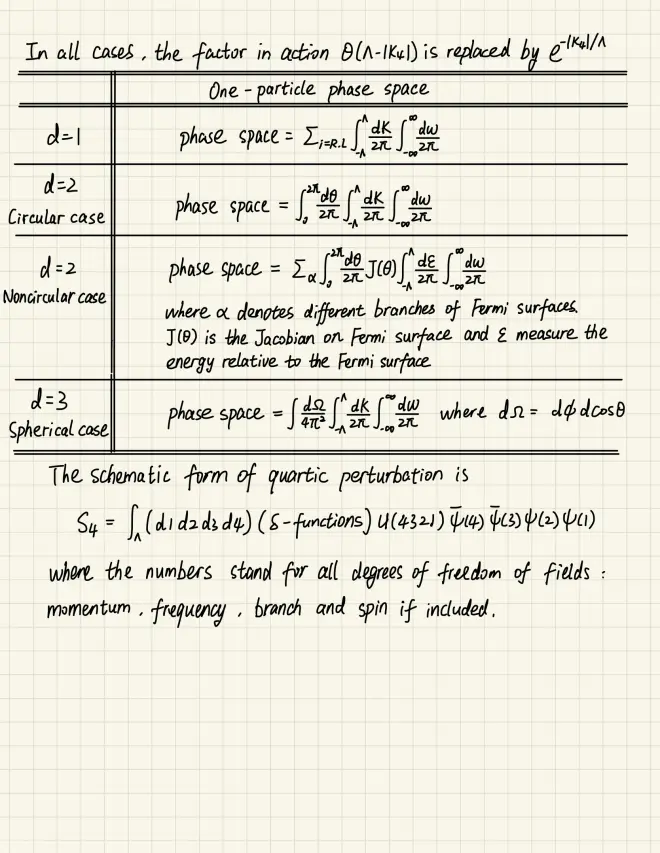 In all cases, the factor in action θ(Λ-|K₄|) is replaced by e^{-|K₄|/Λ}
One-particle phase space
d=1
phase space = Σ_{i=R.L} ∫_{-Λ}^{Λ} dK/2π ∫_{-∞}^{∞} dω/2π
d=2
Circular case
phase space = ∫_0^{2π} dθ/2π ∫_{-Λ}^{Λ} dK/2π ∫_{-∞}^{∞} dω/2π
d=2
Noncircular case
phase space = Σ_α ∫_0^{2π} dθ/2π J(θ) ∫_{-Λ}^{Λ} dε/2π ∫_{-∞}^{∞} dω/2π
where α denotes different branches of Fermi surfaces.
J(θ) is the Jacobian on Fermi surface and ε measure the
energy relative to the Fermi surface
d=3
Spherical case
phase space = ∫ dΩ/4π² ∫_{-Λ}^{Λ} dK/2π ∫_{-∞}^{∞} dω/2π where dΩ = dϕ dcosθ
The schematic form of quartic perturbation is
S₄ = ∫_Λ (d1 d2 d3 d4) (δ-functions) U(4321) ψ̄(4) ψ̄(3) ψ(2) ψ(1)
where the numbers stand for all degrees of freedom of fields :
momentum, frequency, branch and spin if included.